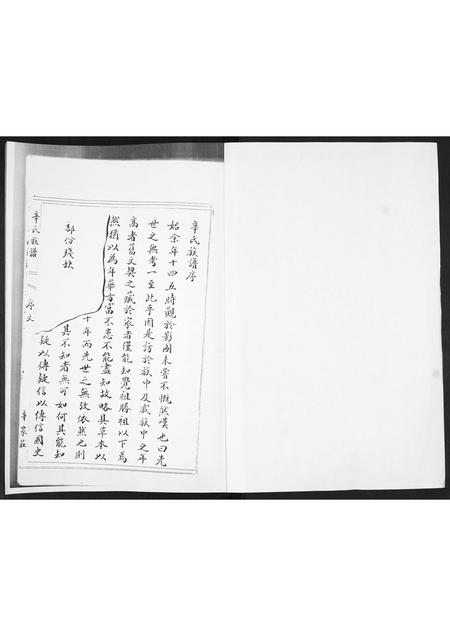 辛氏族譜序
始余年十四五時觀於影圖未嘗不慨然嘆也曰先
世之無考一至此乎因是訪於族中及戚族中之年
高者舊文契之藏於家者僅能知覺祖勝祖以下為
然猶以為年華方富不患不能盡知故略具草本以
十年而先世之無攷依然之則
部份殘缺
其不知者無可如何其能知
疑以傳疑信以傳信國史
辛氏族譜
序文
辛家莊